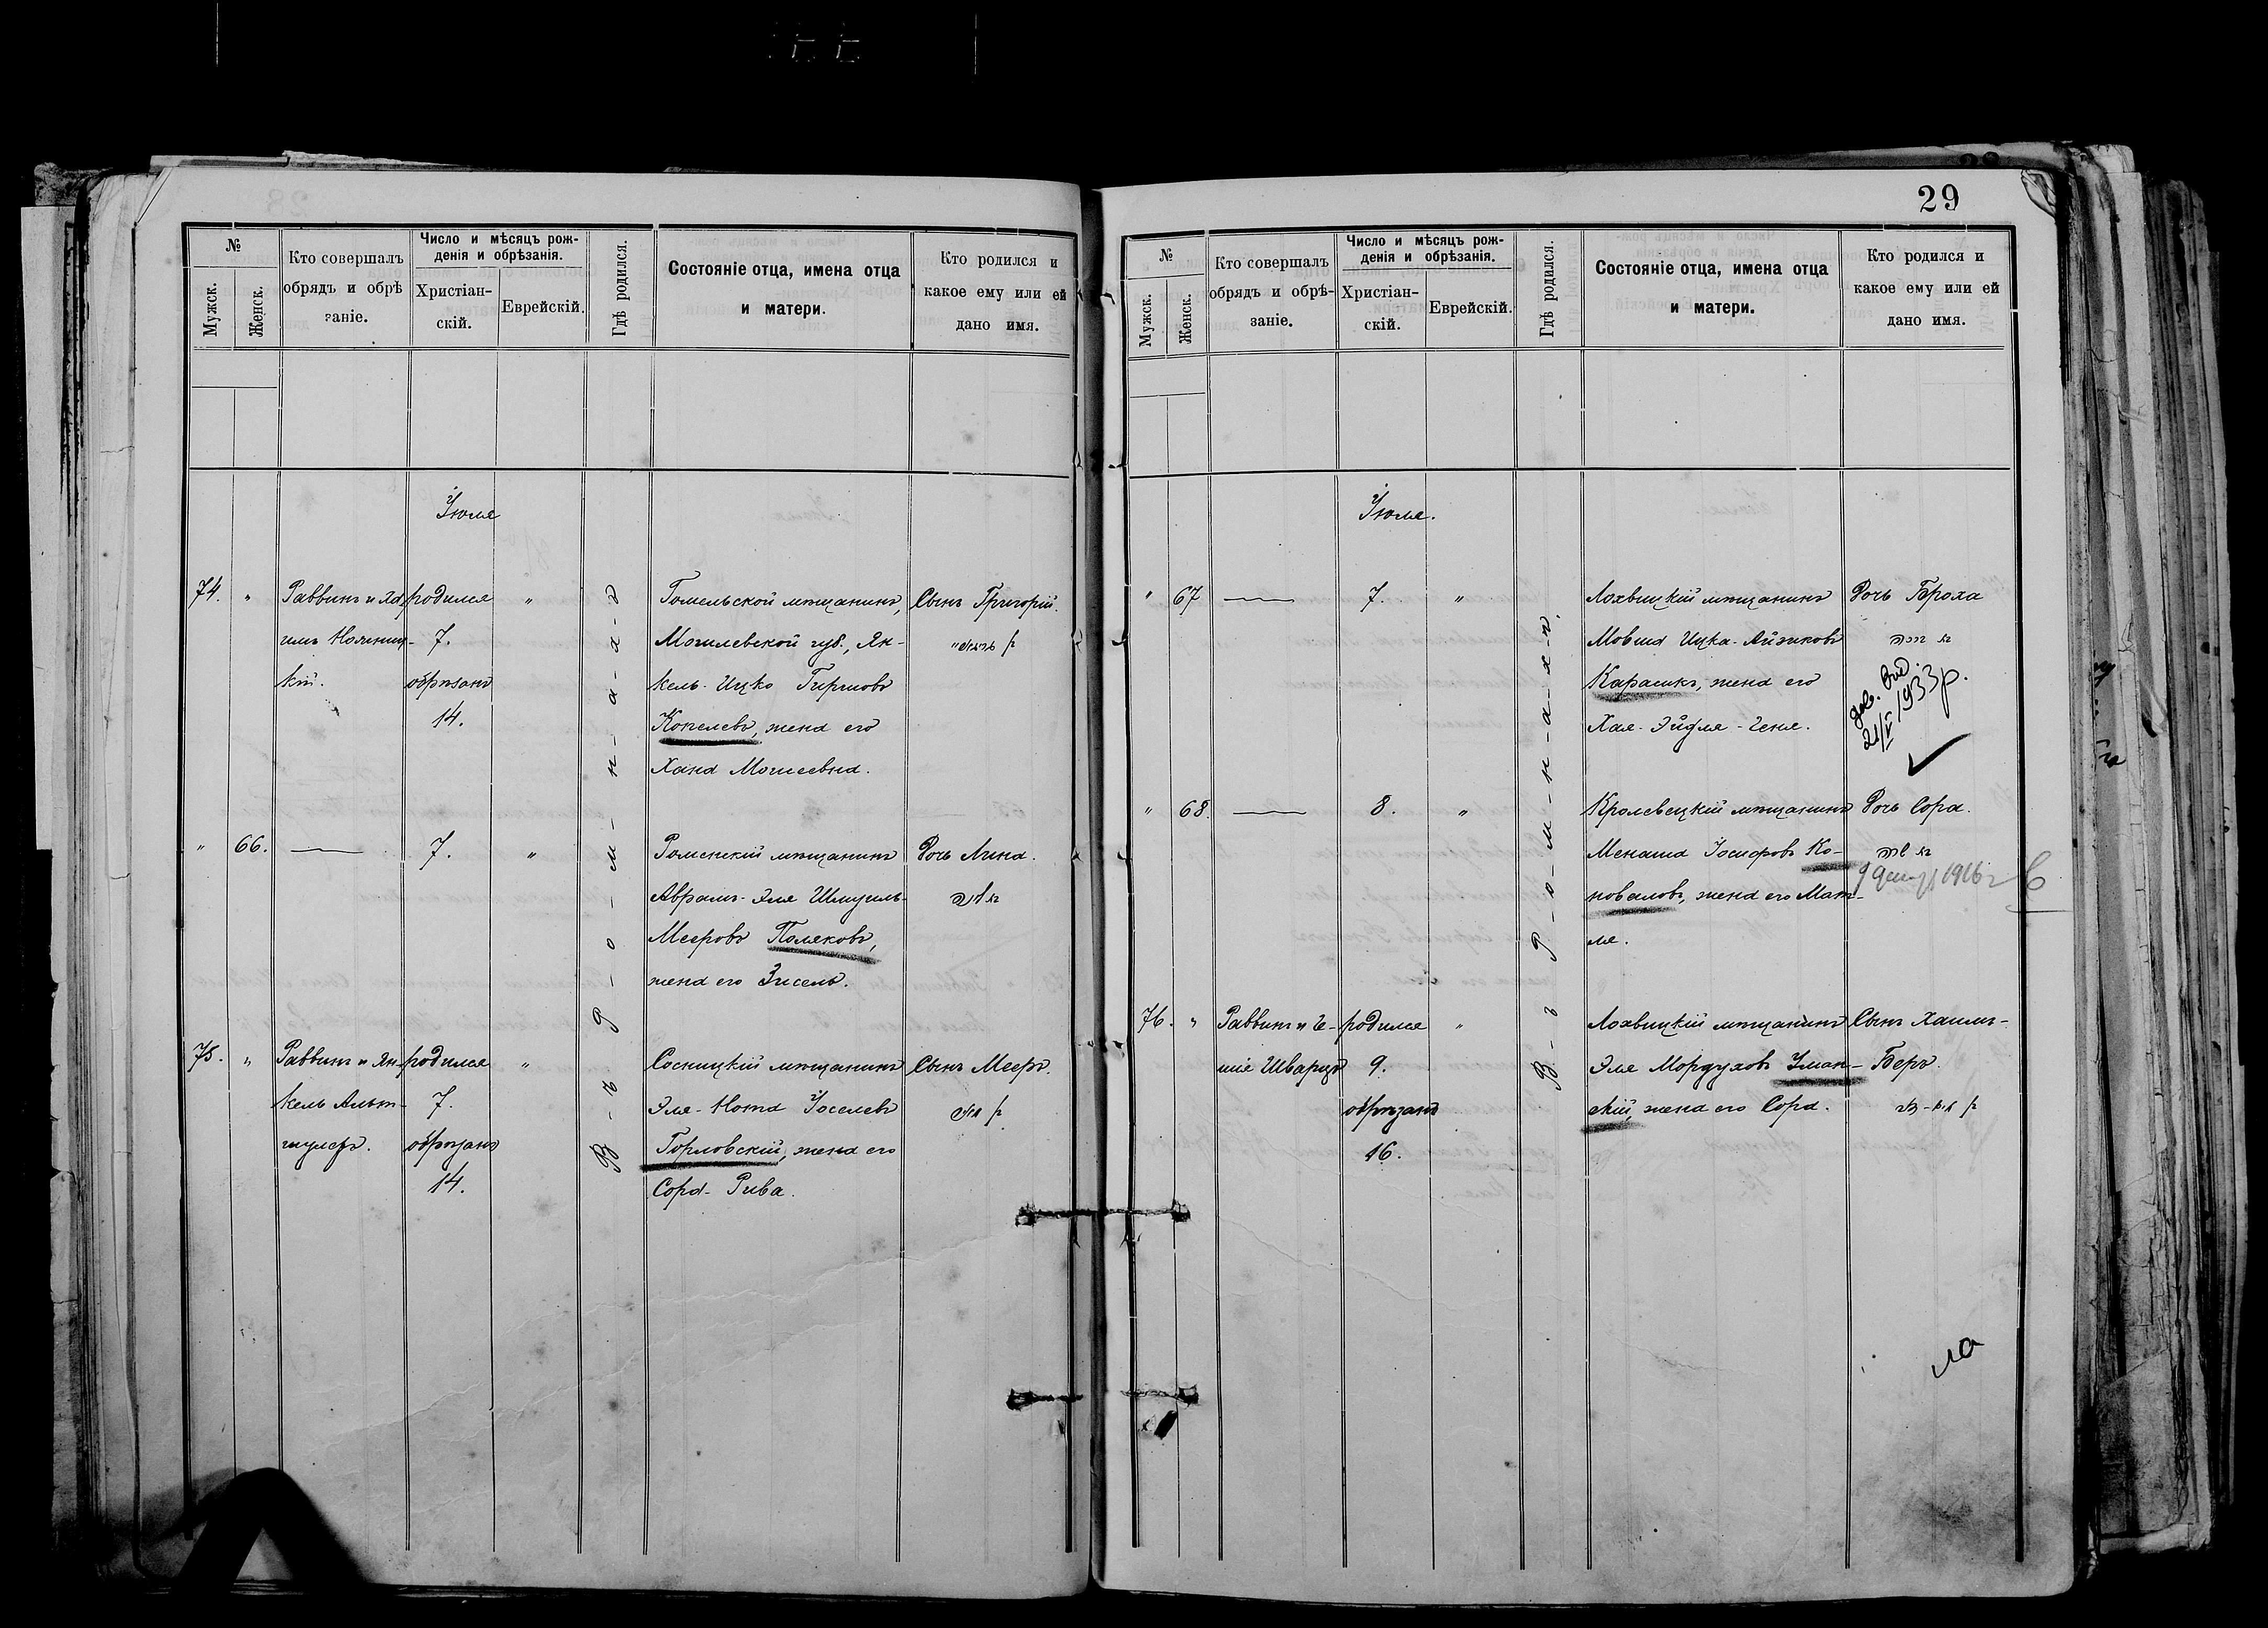 29
№
Мужск.
Женск.
Кто совершалъ
обрядъ и обрѣ
заніе.
Число и мѣсяцъ рож-
денія и обрѣзанія.
Христіан-
скій.
Еврейскій.
Гдѣ родился.
Состояніе отца, имена отца
и матери.
Кто родился и
какое ему или ей
дано имя.
Іюля
В-ъ Р-о-м-н-а-х-ъ
74. "
Раввинъ и
родился
7.
обрѣзанъ
14.
"
Гомельской мѣщанинъ,
Могилевской губ., Ян-
кель-Ицко Гиршовъ
Копелевъ, жена его
Хана Моисеевна.
Сынъ Григорій.
" 66.
7.
"
Роменскій мѣщанинъ
Абрамъ-Эля Шмуиль-
Мееровъ Поляковъ,
жена его Зисель.
Дочь Лина.
75. "
Раввинъ и Ян-
кель Альт-
шулеръ.
родился
7.
обрѣзанъ
14.
"
Сосницкій мѣщанинъ
Эля-Нота Іоселевъ
Горловскій, жена его
Сора-Рива.
Сынъ Мееръ.
№
Мужск.
Женск.
Кто совершалъ
обрядъ и обрѣ-
заніе.
Число и мѣсяцъ рож-
денія и обрѣзанія.
Христіан-
скій.
Еврейскій.
Гдѣ родился.
Состояніе отца, имена отца
и матери.
Кто родился и
какое ему или ей
дано имя.
Іюля.
В-ъ Р-о-м-н-а-х-ъ
" 67
7.
"
Лохвицкій мѣщанинъ
Мовша Ицка-Айзиковъ
Карасикъ, жена его
Хая-Эйдля-Геня.
Дочь Броха
ברכה
21/V 1933 р.
" 68.
8.
"
Кролевецкій мѣщанинъ
Менаша Іосифовъ Ко-
новаловъ, жена его Мат-
ля.
Дочь Сора.
שרה
1916 г
76. "
Раввинъ и Е-
шіе Шварцъ
родился
9.
обрѣзанъ
16.
"
Лохвицкій мѣщанинъ
Эля Мордуховъ Уман-
скій, жена его Сора.
Сынъ Хаимъ-
Беръ.